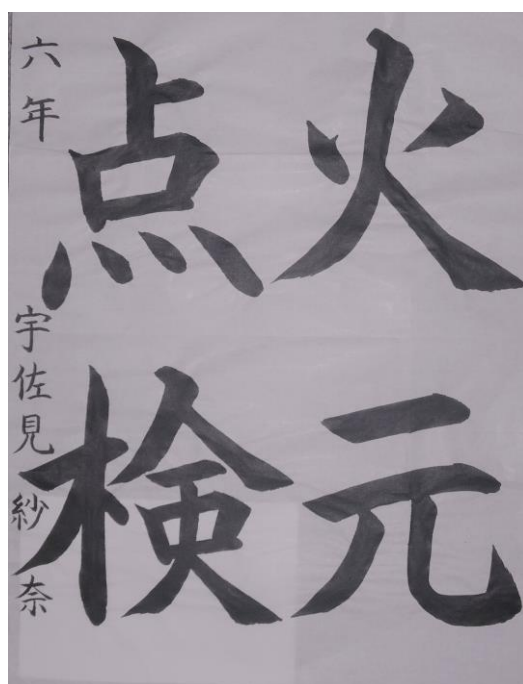 火元
点検
六年 宇佐見紗奈